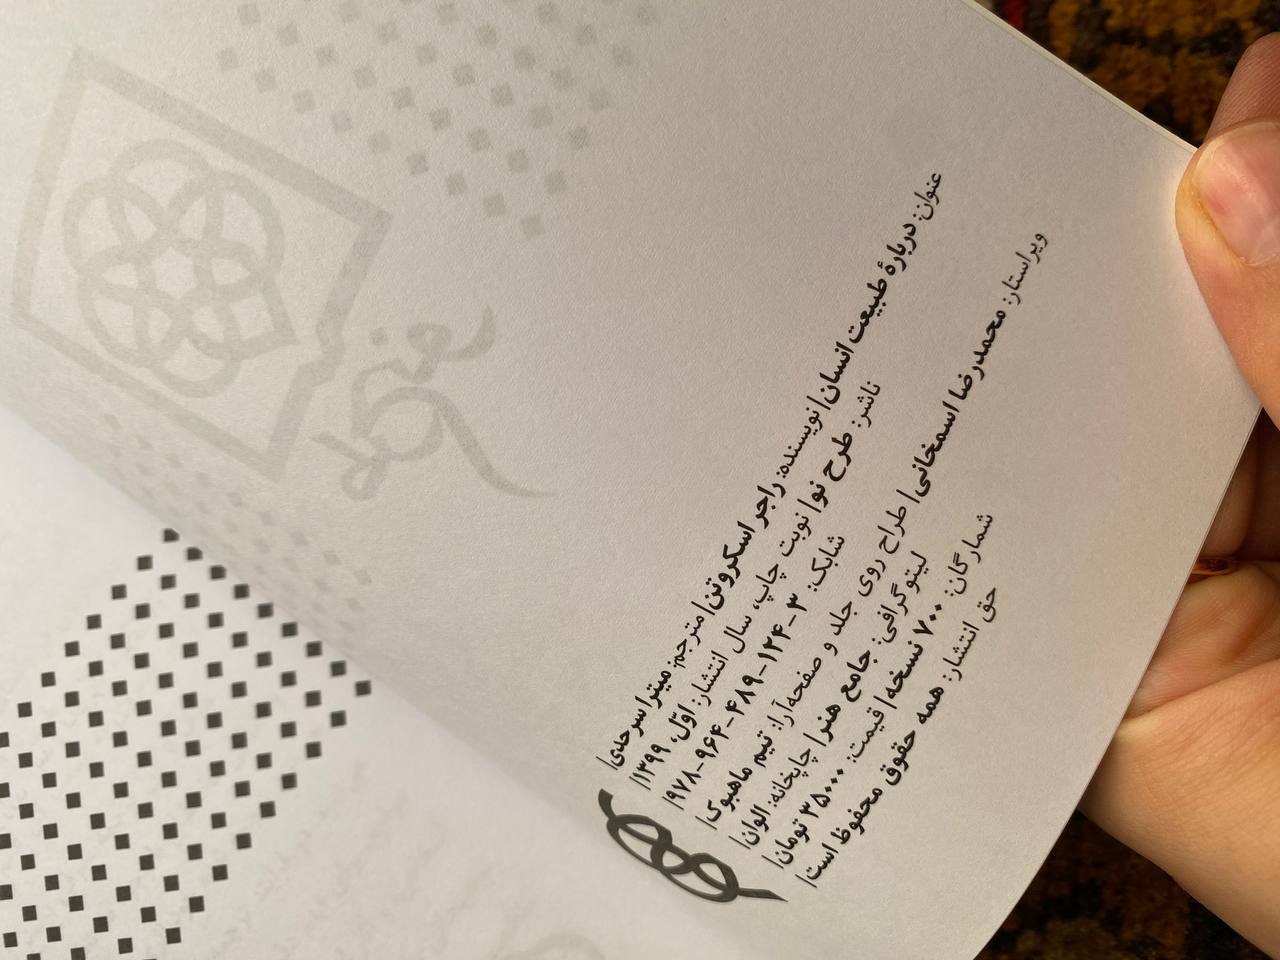 عنوان: دربارهٔ طبیعت انسان| نویسنده: راجر اسکروتن| مترجم: میترا سرحدی|
ناشر: طرح نو| نوبت چاپ، سال انتشار: اوّل، ۱۳۹۹|
شابک: ۳-۱۲۴-۴۸۹-۹۶۴-۹۷۸|
ویراستار: محمدرضا اسمخانی| طراح روی جلد و صفحه‌آرا: تیم ماهبوک|
لیتوگرافی: جامع هنر| چاپخانه: الوان|
شمارگان: ۷۰۰ نسخه| قیمت: ۳۵۰۰۰ تومان|
حق انتشار: همه حقوق محفوظ است|